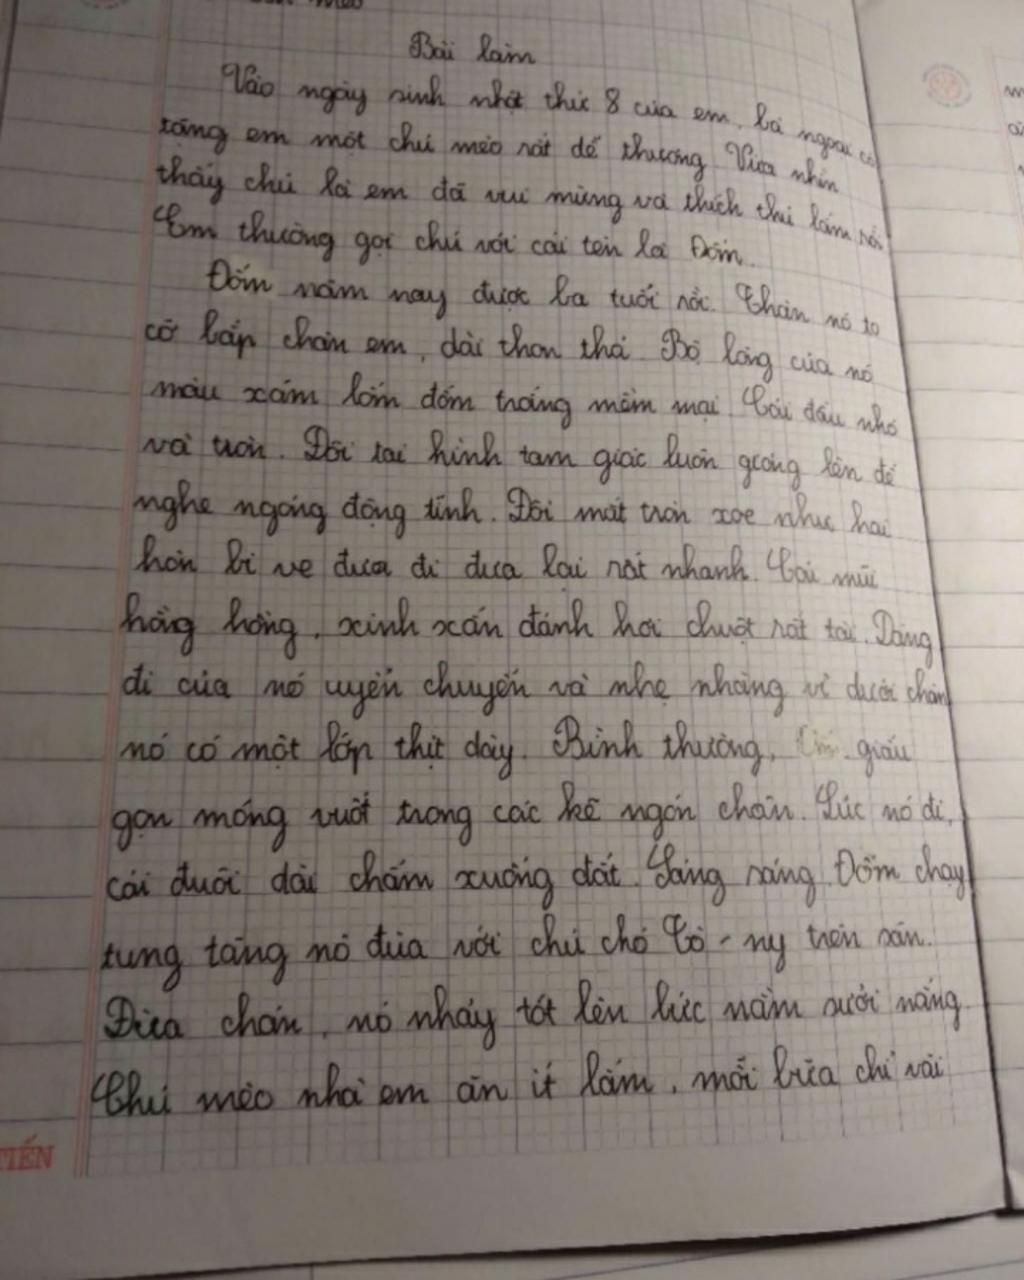 mèo
Bài làm
Vào ngày sinh nhật thứ 8 của em, bà ngoại có
tặng em một chú mèo rất dễ thương. Vừa nhìn
thấy chú là em đã vui mừng và thích thú lắm rồi.
Em thường gọi chú với cái tên là Đốm.
Đốm năm nay được ba tuổi rồi. Thân nó to
cỡ bắp chân em, dài thon thả. Bộ lông của nó
màu xám lốm đốm trắng mềm mại. Cái đầu nhỏ
và tròn. Đôi tai hình tam giác luôn giương lên để
nghe ngóng động tĩnh. Đôi mắt tròn xoe như hai
hòn bi ve đưa đi đưa lại rất nhanh. Cái mũi
hồng hồng, xinh xắn đánh hơi chuột rất tài. Dáng
đi của nó uyển chuyển và nhẹ nhàng vì dưới chân
nó có một lớp thịt dày. Bình thường, giấu
gọn móng vuốt trong các kẽ ngón chân. Lúc nó đi,
cái đuôi dài chấm xuống đất. Sáng sáng, Đốm chạy
tung tăng nô đùa với chú chó Tô - ny trên sân.
Đùa chán, nó nhảy tót lên bục nằm sưởi nắng.
Chú mèo nhà em ăn ít lắm, mỗi bữa chỉ vài
TIẾN